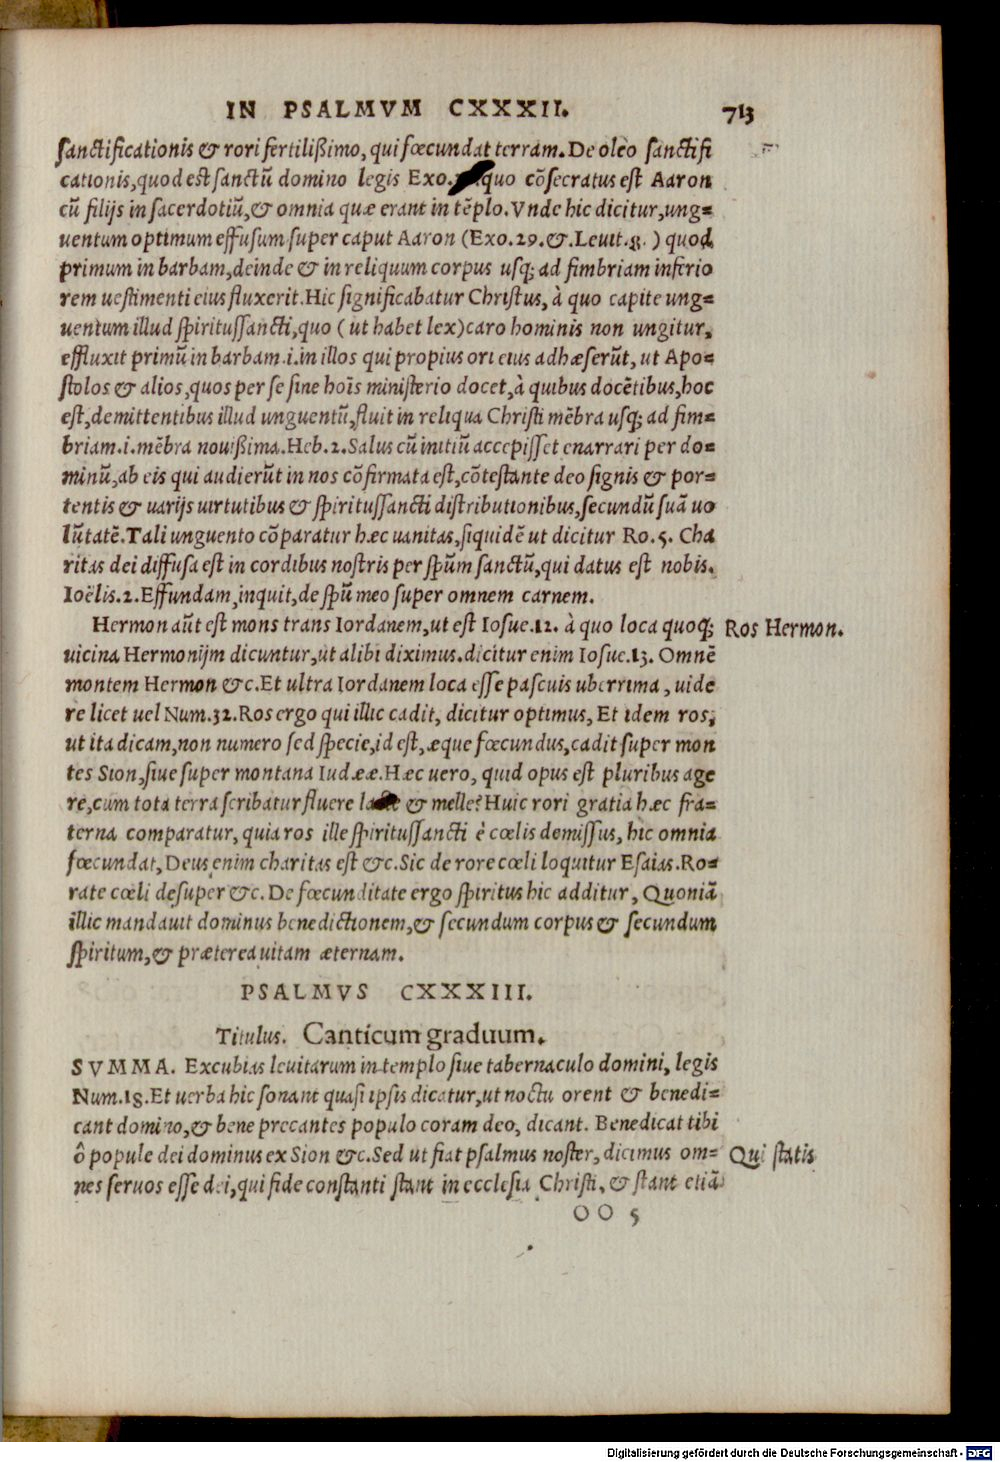 IN PSALMVM CXXXII. 713
sanctificationis & rori fertilißimo, qui fœcundat terram. De oleo sanctifi
cationis, quod est sanctũ domino legis Exo. quo cõsecratus est Aaron
cũ filijs in sacerdotiũ, & omnia quæ erant in tẽplo. Vnde hic dicitur, ung=
uentum optimum effusum super caput Aaron (Exo. 29. &. Leuit. 8. ) quod
primum in barbam, deinde & in reliquum corpus usq; ad fimbriam inferio
rem uestimenti eius fluxerit. Hic significabatur Christus, à quo capite ung=
uentum illud spiritussancti, quo ( ut habet lex) caro hominis non ungitur,
effluxit primũ in barbam .i. in illos qui propius ori eius adhæserũt, ut Apo=
stolos & alios, quos per se sine hoĩs ministerio docet, à quibus docẽtibus, hoc
est, demittentibus illud unguentũ, fluit in reliqua Christi mẽbra usq; ad fim=
briam .i. mẽbra nouißima. Heb. 2. Salus cũ initiũ accepisset enarrari per do=
minũ, ab eis qui audierũt in nos cõfirmata est, cõtestante deo signis & por=
tentis & uarijs uirtutibus & spiritussancti distributionibus, secundũ suã uo
lũtatẽ. Tali unguento cõparatur hæc uanitas, siquidẽ ut dicitur Ro. 5. Cha
ritas dei diffusa est in cordibus nostris per spũm sanctũ, qui datus est nobis.
Ioëlis. 2. Effundam, inquit, de spũ meo super omnem carnem.
Hermon aũt est mons trans Iordanem, ut est Iosue. 12. à quo loca quoq; Ros Hermon.
uicina Hermonijm dicuntur, ut alibi diximus. dicitur enim Iosue. 13. Omnẽ
montem Hermon &c. Et ultra Iordanem loca esse pascuis uberrima, uide
re licet uel Num. 32. Ros ergo qui illic cadit, dicitur optimus, Et idem ros,
ut ita dicam, non numero sed specie, id est, æque fœcundus, cadit super mon
tes Sion, siue super montana Iudææ. Hæc uero, quid opus est pluribus age
re, cum tota terra scribatur fluere lacte & melle? Huic rori gratia hæc fra=
terna comparatur, quia ros ille spiritussancti è cœlis demissus, hic omnia
fœcundat, Deus enim charitas est &c. Sic de rore cœli loquitur Esaias. Ro=
rate cœli desuper &c. De fœcunditate ergo spiritus hic additur, Quoniã
illic mandauit dominus benedictionem, & secundum corpus & secundum
spiritum, & præterea uitam æternam.
PSALMVS CXXXIII.
Titulus. Canticum graduum.
SVMMA. Excubias leuitarum in templo siue tabernaculo domini, legis
Num. 18. Et uerba hic sonant quasi ipsis dicatur, ut noctu orent & benedi=
cant domino, & bene precantes populo coram deo, dicant. Benedicat tibi
ô popule dei dominus ex Sion &c. Sed ut fiat psalmus noster, dicimus om= Qui statis
nes seruos esse dei, qui fide constanti stant in ecclesia Christi, & stant etiã
OO 5
Digitalisierung gefördert durch die Deutsche Forschungsgemeinschaft - DFG